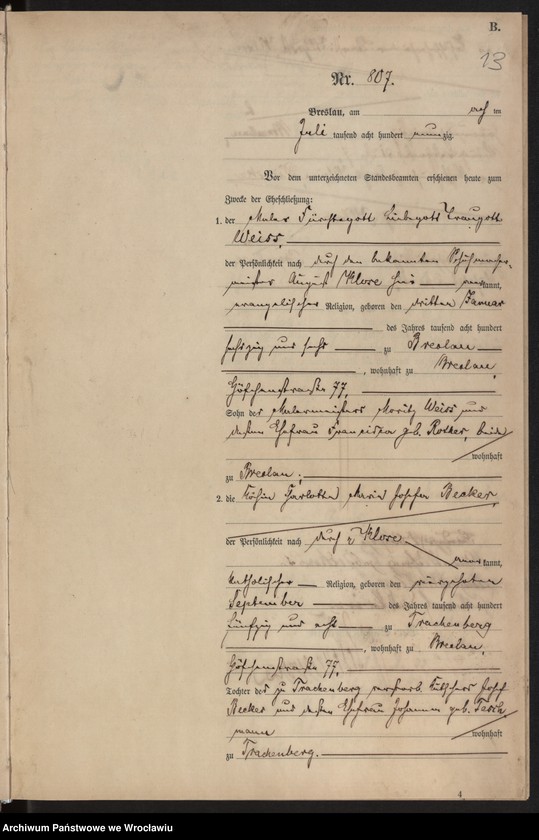 B.
13
Nr. 807.
Breslau, am acht im
Juli tausend acht hundert neunzig.
Vor dem unterzeichneten Standesbeamten erschienen heute zum
Zwecke der Eheschließung:
1. der Maler Fürchtegott Liebegott Traugott
Weiss,
der Persönlichkeit nach durch den bekannten Schuhmacher-
meister August Klose hier kannt,
evangelischer Religion, geboren den dritten Januar
des Jahres tausend acht hundert
sechszig und sechs zu Breslau
, wohnhaft zu Breslau,
Höfchenstraße 77,
Sohn des Malermeisters Moritz Weiss und
dessen Ehefrau Franziska geb. Rother, beide
wohnhaft
zu Breslau;
2. die Köchin Charlotte Maria Josefa Becker,
der Persönlichkeit nach durch Klose
kannt,
katholischer Religion, geboren den vierzehnten
September des Jahres tausend acht hundert
fünfzig und acht zu Trachenberg
, wohnhaft zu Breslau,
Höfchenstraße 77,
Tochter des zu Trachenberg verstorb. Josef
Becker und dessen Ehefrau Johanna geb.
mann wohnhaft
zu Trachenberg.
4
Archiwum Państwowe we Wrocławiu